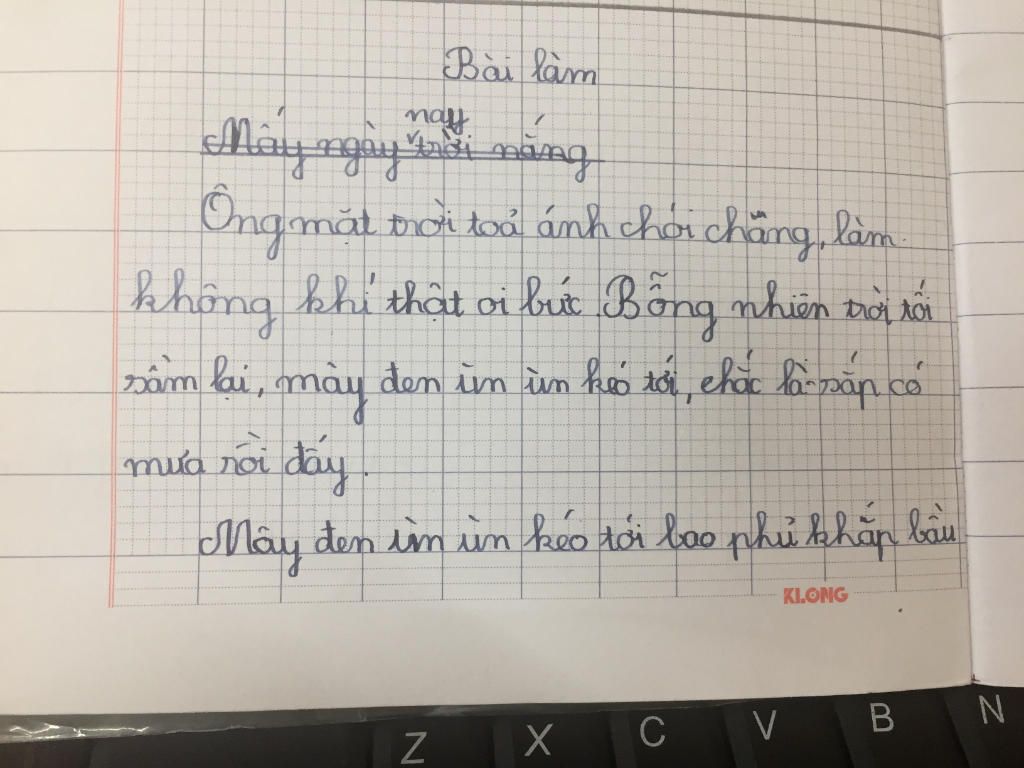 Bài làm
nay
Mấy ngày trời nắng
Ông mặt trời toả ánh chói chăng, làm
không khí thật oi bức. Bỗng nhiên trời tối
sầm lại, mày đen ùn ùn kéo tới, chắc là sắp có
mưa rồi đấy.
Mây đen ùn ùn kéo tới bao phủ khắp bầu
KLONG
Z X C V B N